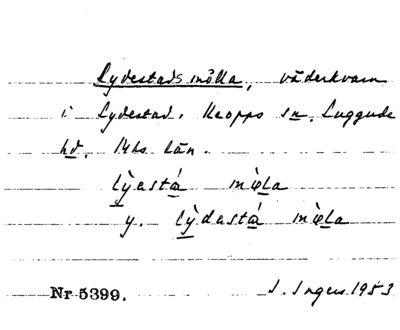 Lydestads mölla, väderkvarn
i Lydestad, Kropps sn. Luggude
hd. Mhs län.
lỳestá mœla
y. lỳdestá mœla
Nr 5399. I. Ingers 1953